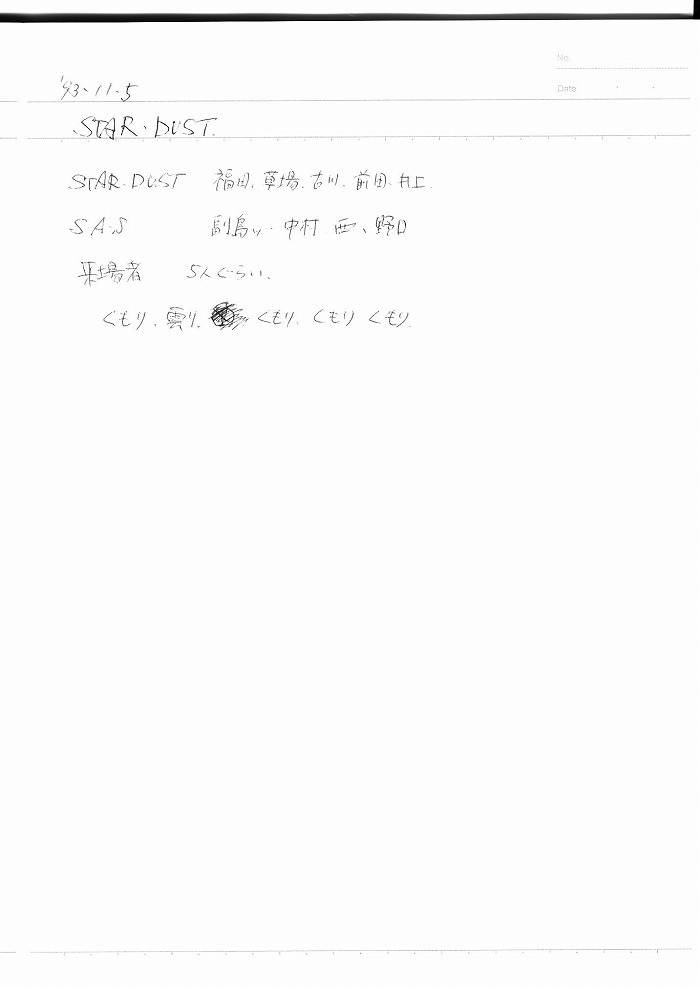 No.
Date ・ ・
'93・11・5
・STAR・DUST.
STAR・DUST 福田、草場、古川、前田、井上.
S・A・S 副島ッ・中村 西、野口
来場者 5人ぐらい、
くもり、雲り、くもり、くもり くもり.